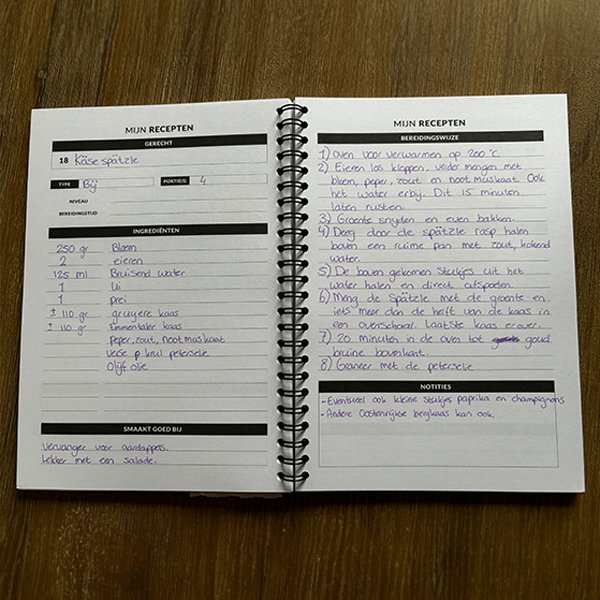 MIJN RECEPTEN
GERECHT
18 Käse spätzle
TYPE Bij PORTIE(S) 4
NIVEAU
BEREIDINGSTIJD
INGREDIËNTEN
250 gr Bloem
2 eieren
125 ml Bruisend water
1 Ui
1 prei
± 110 gr gruyere kaas
± 110 gr Emmentaler kaas
Peper, zout, nootmuskaat
Verse krul peterselie
Olijf olie
SMAAKT GOED BIJ
Vervanger voor aardappes.
Lekker met een salade.
MIJN RECEPTEN
BEREIDINGSWIJZE
1) Oven voor verwarmen op 200 °C.
2) Eieren los kloppen, verder mengen met
bloem, peper, zout en nootmuskaat. Ook
het water erbij. Dit 15 minuten
laten rusten.
3) Groente snijden en even bakken.
4) Deeg door de spätzle rasp halen
boven een ruime pan met zout, kokend
water.
5) De boven gekomen stukjes uit het
water halen en direct afspoelen.
6) Meng de spätzle met de groente en
iets meer dan de helft van de kaas in
een ovenschaal. Laatste kaas erover.
7) 20 minuten in de oven tot goud
bruine bovenkant.
8) Graneer met de peterselie
NOTITIES
- Eventueel ook kleine stukjes paprika en champignons
- Andere Oostenrijkse bergkaas kan ook.